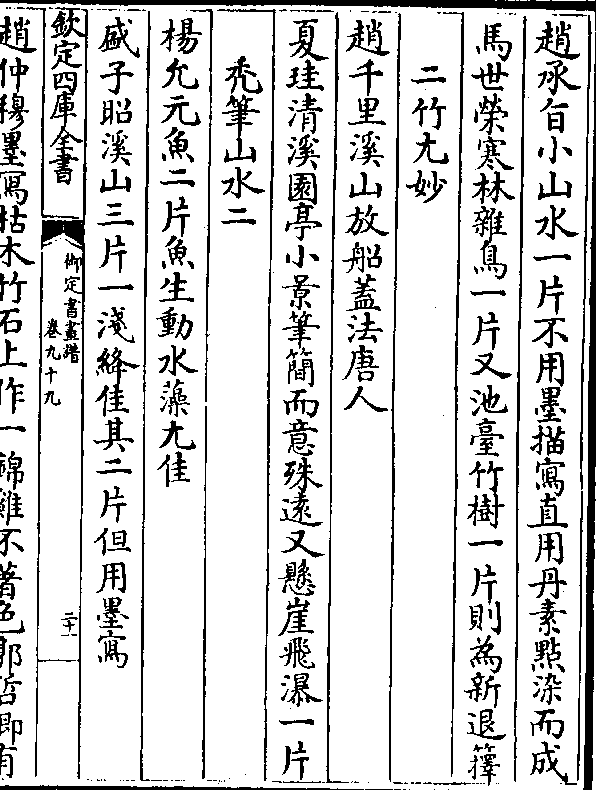 趙承旨小山水一片不用墨描寫直用丹素點染而成
馬世榮寒林雜鳥一片又池臺竹樹一片則為新退籜
二竹尤妙
趙千里溪山放船蓋法唐人
夏珪清溪園亭小景筆簡而意殊遠又懸崖飛瀑一片
禿筆山水二
楊允元魚二片魚生動水藻尤佳
盛子昭溪山三片一淺絳佳其二片但用墨寫
欽定四庫全書
御定書畫譜
卷九十九
二十一
趙仲穆墨寫枯木竹石上作一錦雞不著色郭哲卿有